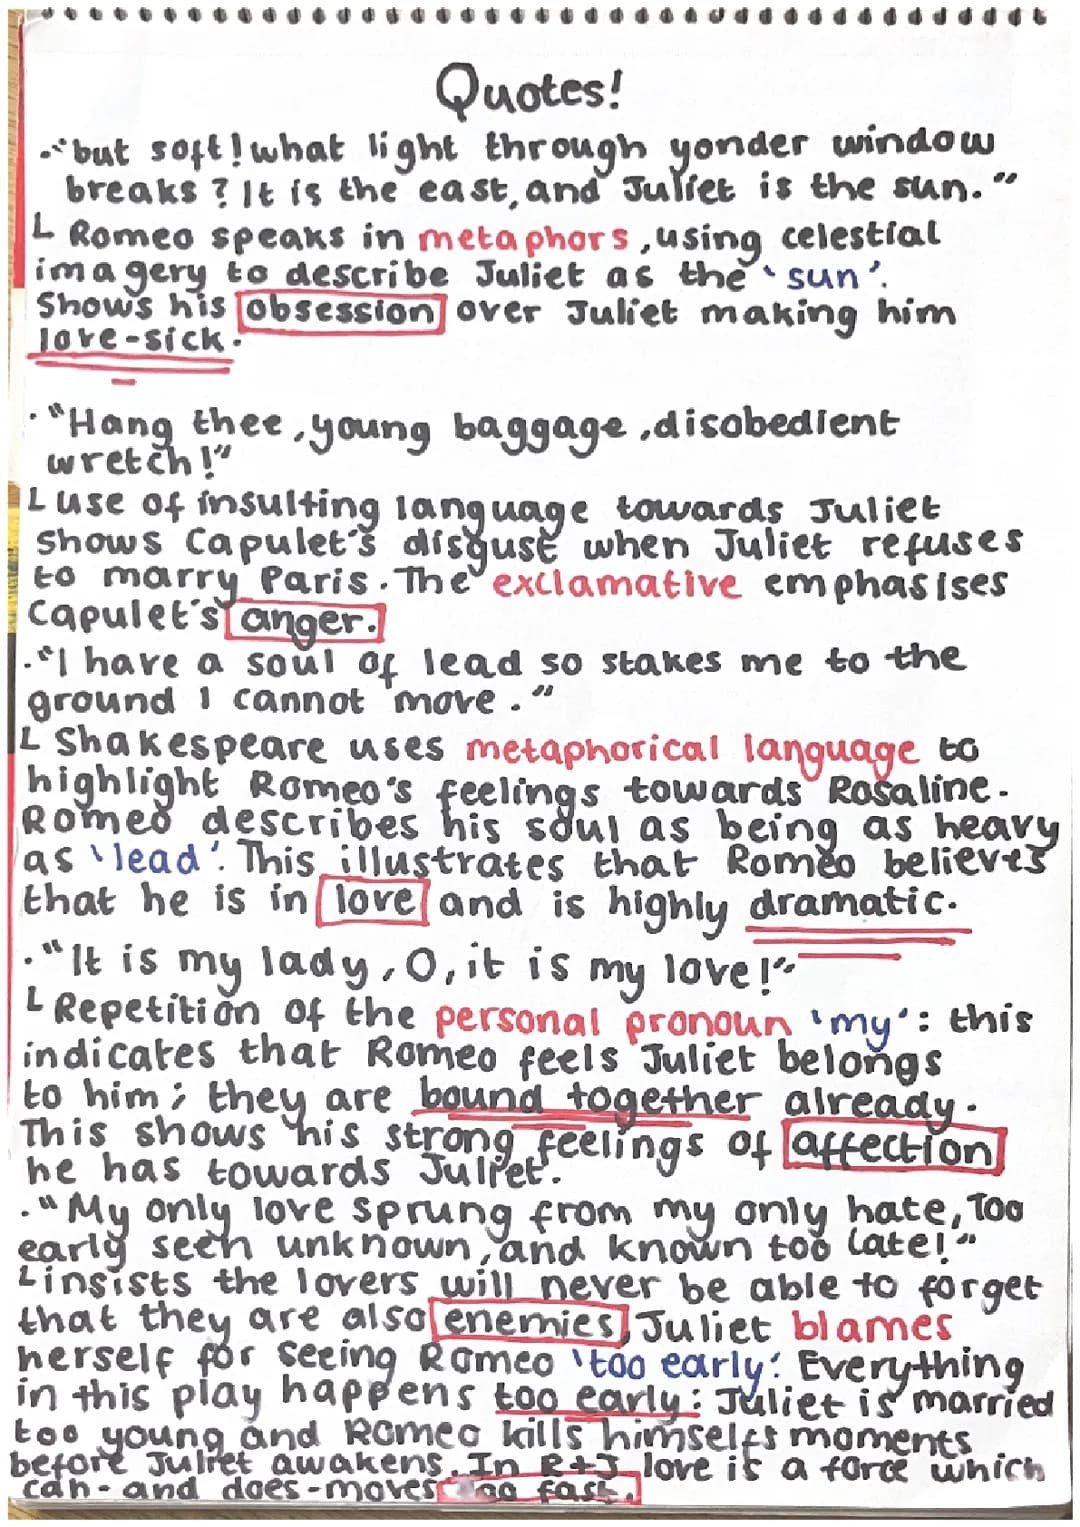 Quotes!
·"but soft! what light through yonder window
breaks? It is the east, and Juliet is the sun."
L Romeo speaks in metaphors, using celestial
imagery to describe Juliet as the 'sun'.
Shows his obsession over Juliet making him
love-sick.
·"Hang thee, young baggage, disobedient
wretch!"
L use of insulting language towards Juliet
shows Capulet's disgust when Juliet refuses
to marry Paris. The exclamative emphasises
Capulet's anger.
·"I have a soul of lead so stakes me to the
ground I cannot move."
L Shakespeare uses metaphorical language to
highlight Romeo's feelings towards Rosaline.
Romeo describes his soul as being as heavy
as 'lead'. This illustrates that Romeo believes
that he is in love and is highly dramatic.
·"It is my lady, O, it is my love!"
L Repetition of the personal pronoun 'my': this
indicates that Romeo feels Juliet belongs
to him; they are bound together already.
This shows his strong feelings of affection
he has towards Juliet.
·"My only love sprung from my only hate, Too
early seen unknown, and known too late!"
L insists the lovers will never be able to forget
that they are also enemies, Juliet blames
herself for seeing Romeo 'too early'. Everything
in this play happens too early: Juliet is married
too young and Romeo kills himself moments
before Juliet awakens. In R+J love is a force which
can- and does-moves too fast.